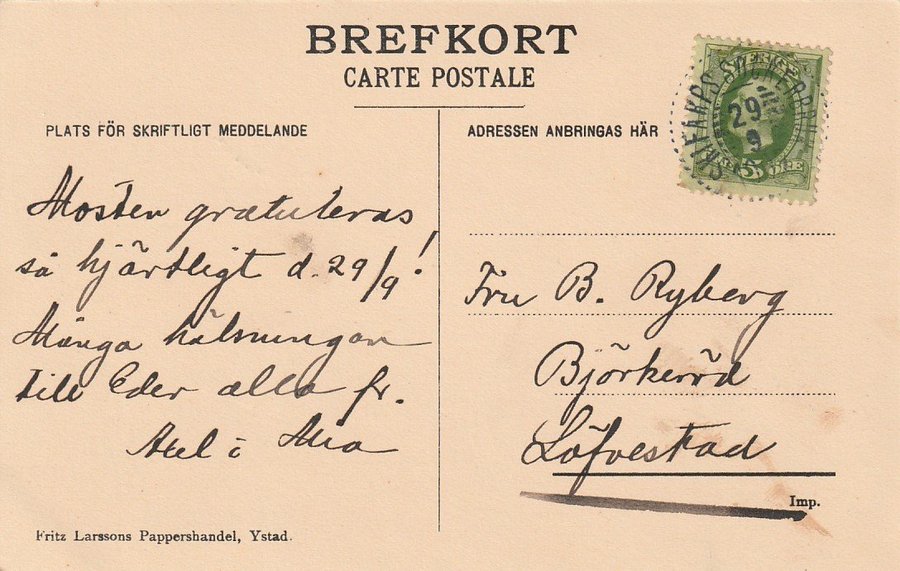 BREFKORT
CARTE POSTALE
PLATS FÖR SKRIFTLIGT MEDDELANDE
ADRESSEN ANBRINGAS HÄR
SVERIGE
29
9
5 ÖRE
Mosten gratuleras
så hjärtligt d. 29/9!
Många hälsningar
till Eder alla fr.
Axel o Mia
Fru B. Ryberg
Björkeröd
Löfvestad
Imp.
Fritz Larssons Pappershandel, Ystad.